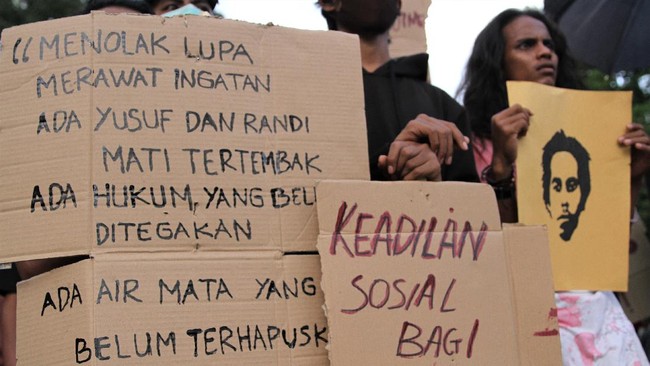 “MENOLAK LUPA
MERAWAT INGATAN
ADA YUSUF DAN RANDI
MATI TERTEMBAK
ADA HUKUM, YANG
DITEGAKAN
ADA AIR MATA YANG
BELUM TERHAPUSK
KEADILAN
SOSIAL
BAGI